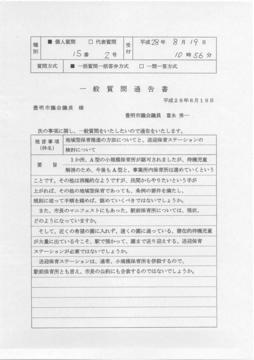 種別 ■ 個人質問 □ 代表質問 受付 平成28年 8月19日
15番 2号 10時56分
質問方式 ■ 一括質問一括答弁方式 □ 一問一答方式
一般質問通告書
平成28年8月19日
豊明市議会議長 様
豊明市議会議員
次の事項に関し、一般質問をいたしたいので通告をいたします。
地域型保育推進の方法についてと、送迎保育ステーションの
検討について
要旨 3か所、A型の小規模保育所が認可されましたが、待機児童
解消のため、今後もA型と、事業所内保育所は進めていくという
ことです。その他は消極的なようですが、民間からやりたいという手が
上がれば、その他の地域型保育であっても、条例の要件を満たし、
規則に従って手順を踏めば、認めていくべきではないでしょうか。
また、市長のマニフェストにもあった、駅前保育所については、現状、
どのようになっていますか。
そして、近くの希望の園に入れず、遠くの園に通っている、潜在的待機児童
が大量に出ている今こそ、駅で預かって、園まで送り迎えする、送迎保育
ステーションが必要ではないでしょうか。
送迎保育ステーションは、通常、小規模保育所を併設するので、
駅前保育所とも言え、市長の公約にも合致するのではないでしょうか。